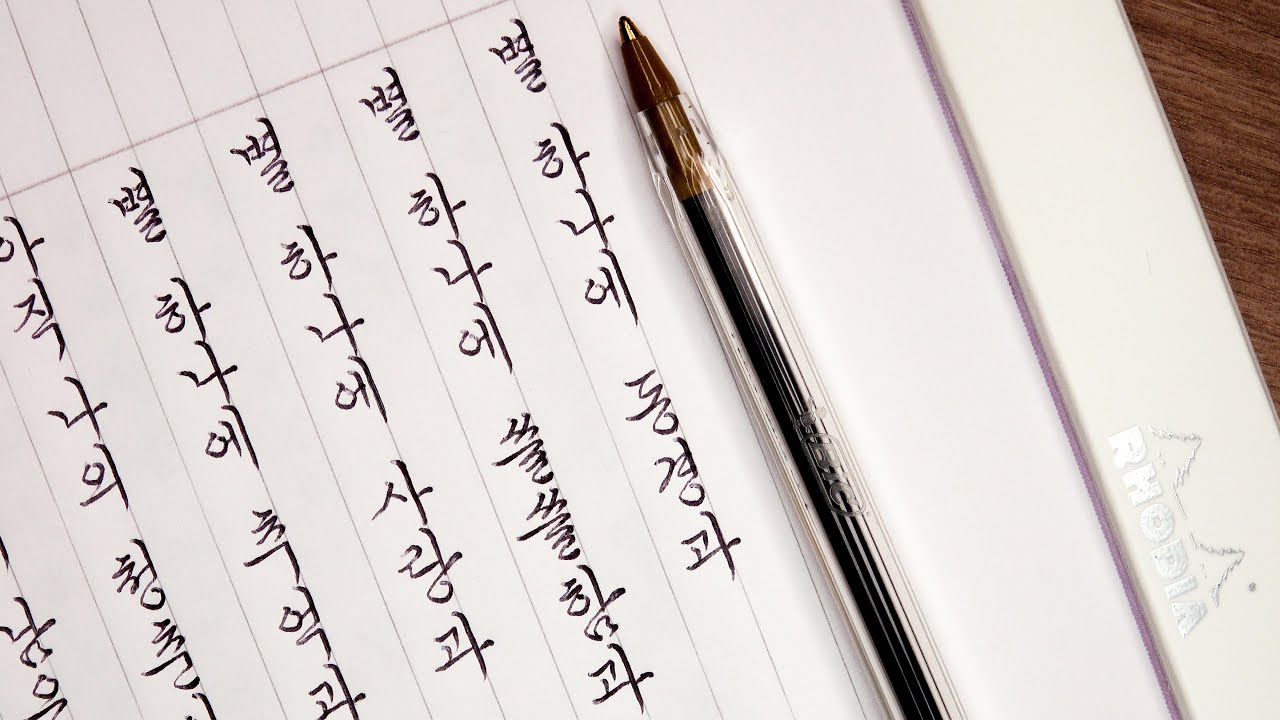 남은
아직 나의 청춘이
별 하나에 추억과
별 하나에 사랑과
별 하나에 쓸쓸함과
별 하나에 동경과
BIC
RHODIA